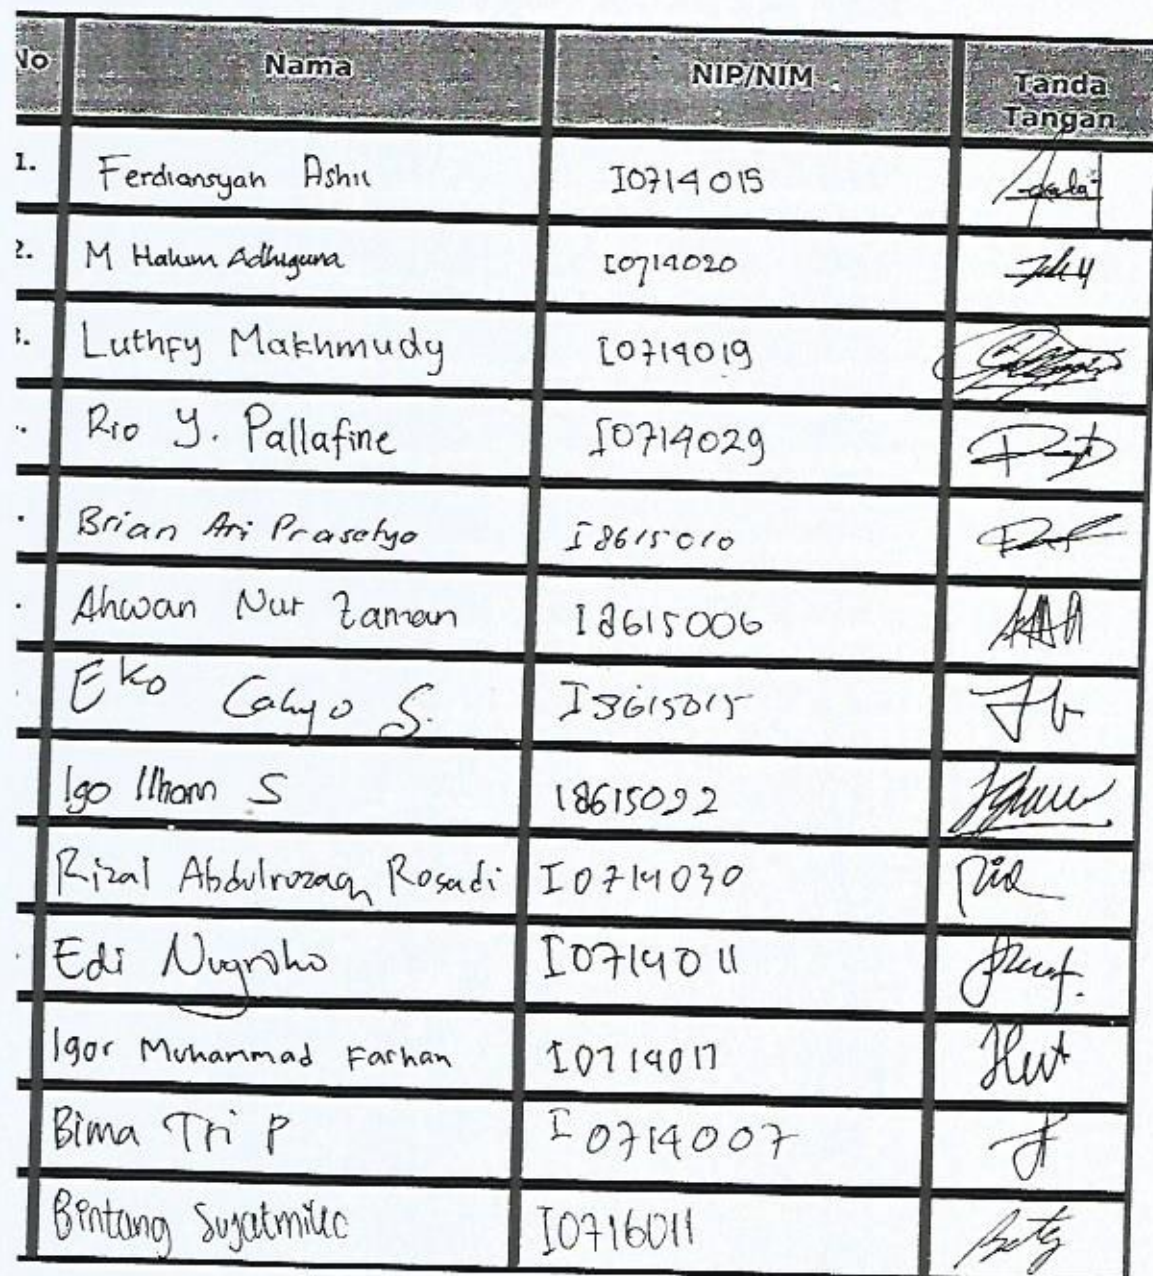 No Nama NIP/NIM Tanda Tangan
1. Ferdiansyah Ashil I0714015
2. M Hakim Adhiguna I0714020
3. Luthfy Makhmudy I0714019
Rio Y. Pallafine I0714029
Brian Ari Prasetyo I8615010
Ahwan Nur Zaman I8615006
Eko Cahyo S. I8615015
Igo Ilham S I8615022
Rizal Abdulrozaq Rosadi I0714030
Edi Nugroho I0714011
Igor Muhammad Farhan I0714017
Bima Tri P I0714007
Bintang I0716011